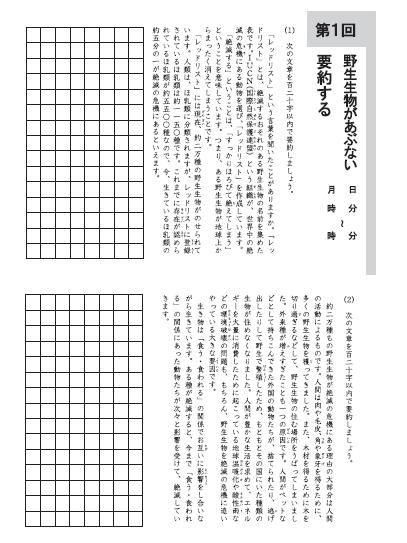 第1回
野生生物があぶない
要約する
月　日
時　分
～
時　分
(1)　次の文章を百二十字以内で要約しましょう。
「レッドリスト」という言葉を聞いたことがありますか。「レッ
ドリスト」とは、絶滅するおそれのある野生生物の名前を集めた
表です。IUCN（国際自然保護連盟）という組織が、世界中の絶
滅の危機にある動物を選び、「レッドリスト」を作成しています。
「絶滅する」ということは、「すっかりほろびて絶えてしまう」
ということを意味しています。つまり、ある野生生物が地球上か
らまったく消えてしまうことです。
「レッドリスト」には現在、約二万種の野生生物がのせられて
います。人類は、ほ乳類に分類されますが、レッドリストに登録
されているほ乳類は約一一五〇種です。これまでに存在が認めら
れているほ乳類が約五五〇〇種なので、今、生きているほ乳類の
約五分の一が絶滅の危機にあるといえます。
(2)　次の文章を百二十字以内で要約しましょう。
約二万種もの野生生物が絶滅の危機にある理由の大部分は人間
の活動によるものです。人間は肉や毛皮、角や象牙を得るために、
多くの野生生物を獲ってきました。また、木材を得るために木を
切り過ぎるなどして、野生生物の住む場所をうばってしまいまし
た。外来種が増えすぎたことも一つの原因です。人間がペットな
どとして持ちこんできた外国の動物たちが、捨てられたり、逃げ
出したりして野生で繁殖したため、もともとその国にいた種類の
生物が住めなくなりました。人間が豊かな生活を求めて、エネル
ギーを大量に消費したために起こっている地球温暖化や酸性雨な
どの環境破壊の問題も、もちろん、野生生物を絶滅の危機に追い
やっている大きな要因です。
生き物は「食う・食われる」の関係でお互いに影響をし合いな
がら生きています。ある種が絶滅すると、今まで「食う・食われ
る」の関係にあった動物たちが次々と影響を受けて、絶滅してい
きます。